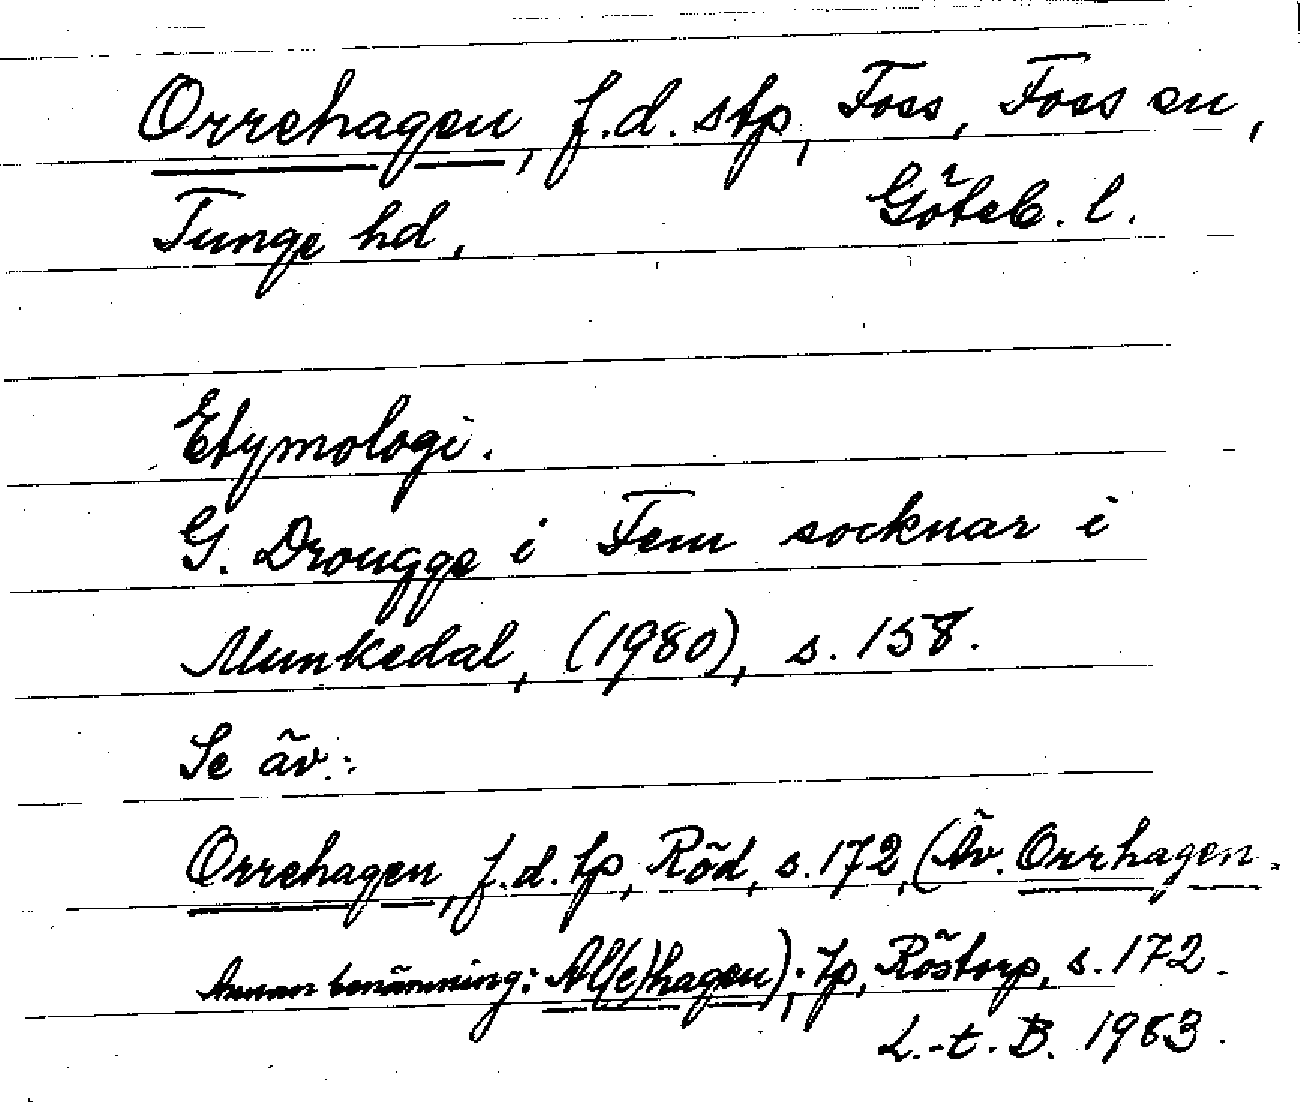 Orrehagen, f.d. stp, Foss, Foss sn,
Tunge hd, Göteb. l.
Etymologi.
G. Drougge i Fem socknar i
Munkedal, (1980), s. 158.
Se äv.:
Orrehagen, f.d. tp, Röd, s. 172, (Äv. Orrhagen.
Annan benämning: Al(e)hagen); tp, Röstorp, s. 172.
L.-t. B. 1983.